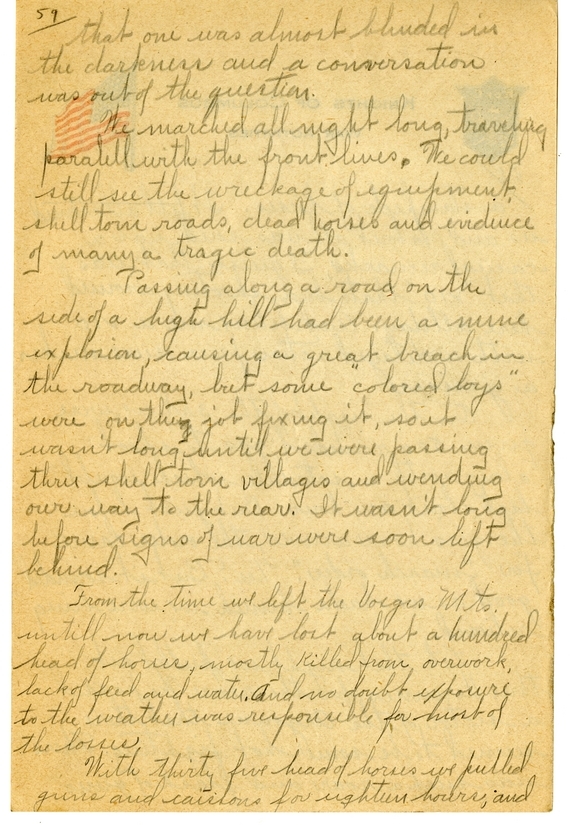 59
that one was almost blinded in
the darkness and a conversation
was out of the question.
We marched all night long, traveling
paralell with the front lines. We could
still see the wreckage of equipment,
shell torn roads, dead horses and evidence
of many a tragic death.
Passing along a road on the
side of a high hill had been a mine
explosion, causing a great breach in
the roadway, but some "colored boys"
were on the job fixing it, so it
wasn't long until we were passing
thru shell torn villages and wending
our way to the rear. It wasn't long
before signs of war were soon left
behind.
From the time we left the Vosges Mts.
untill now we have lost about a hundred
head of horses, mostly killed from overwork,
lack of feed and water. And no doubt exposure
to the weather was responsible for most of
the losses.
With thirty five head of horses we pulled
guns and caissons for eighteen hours, and